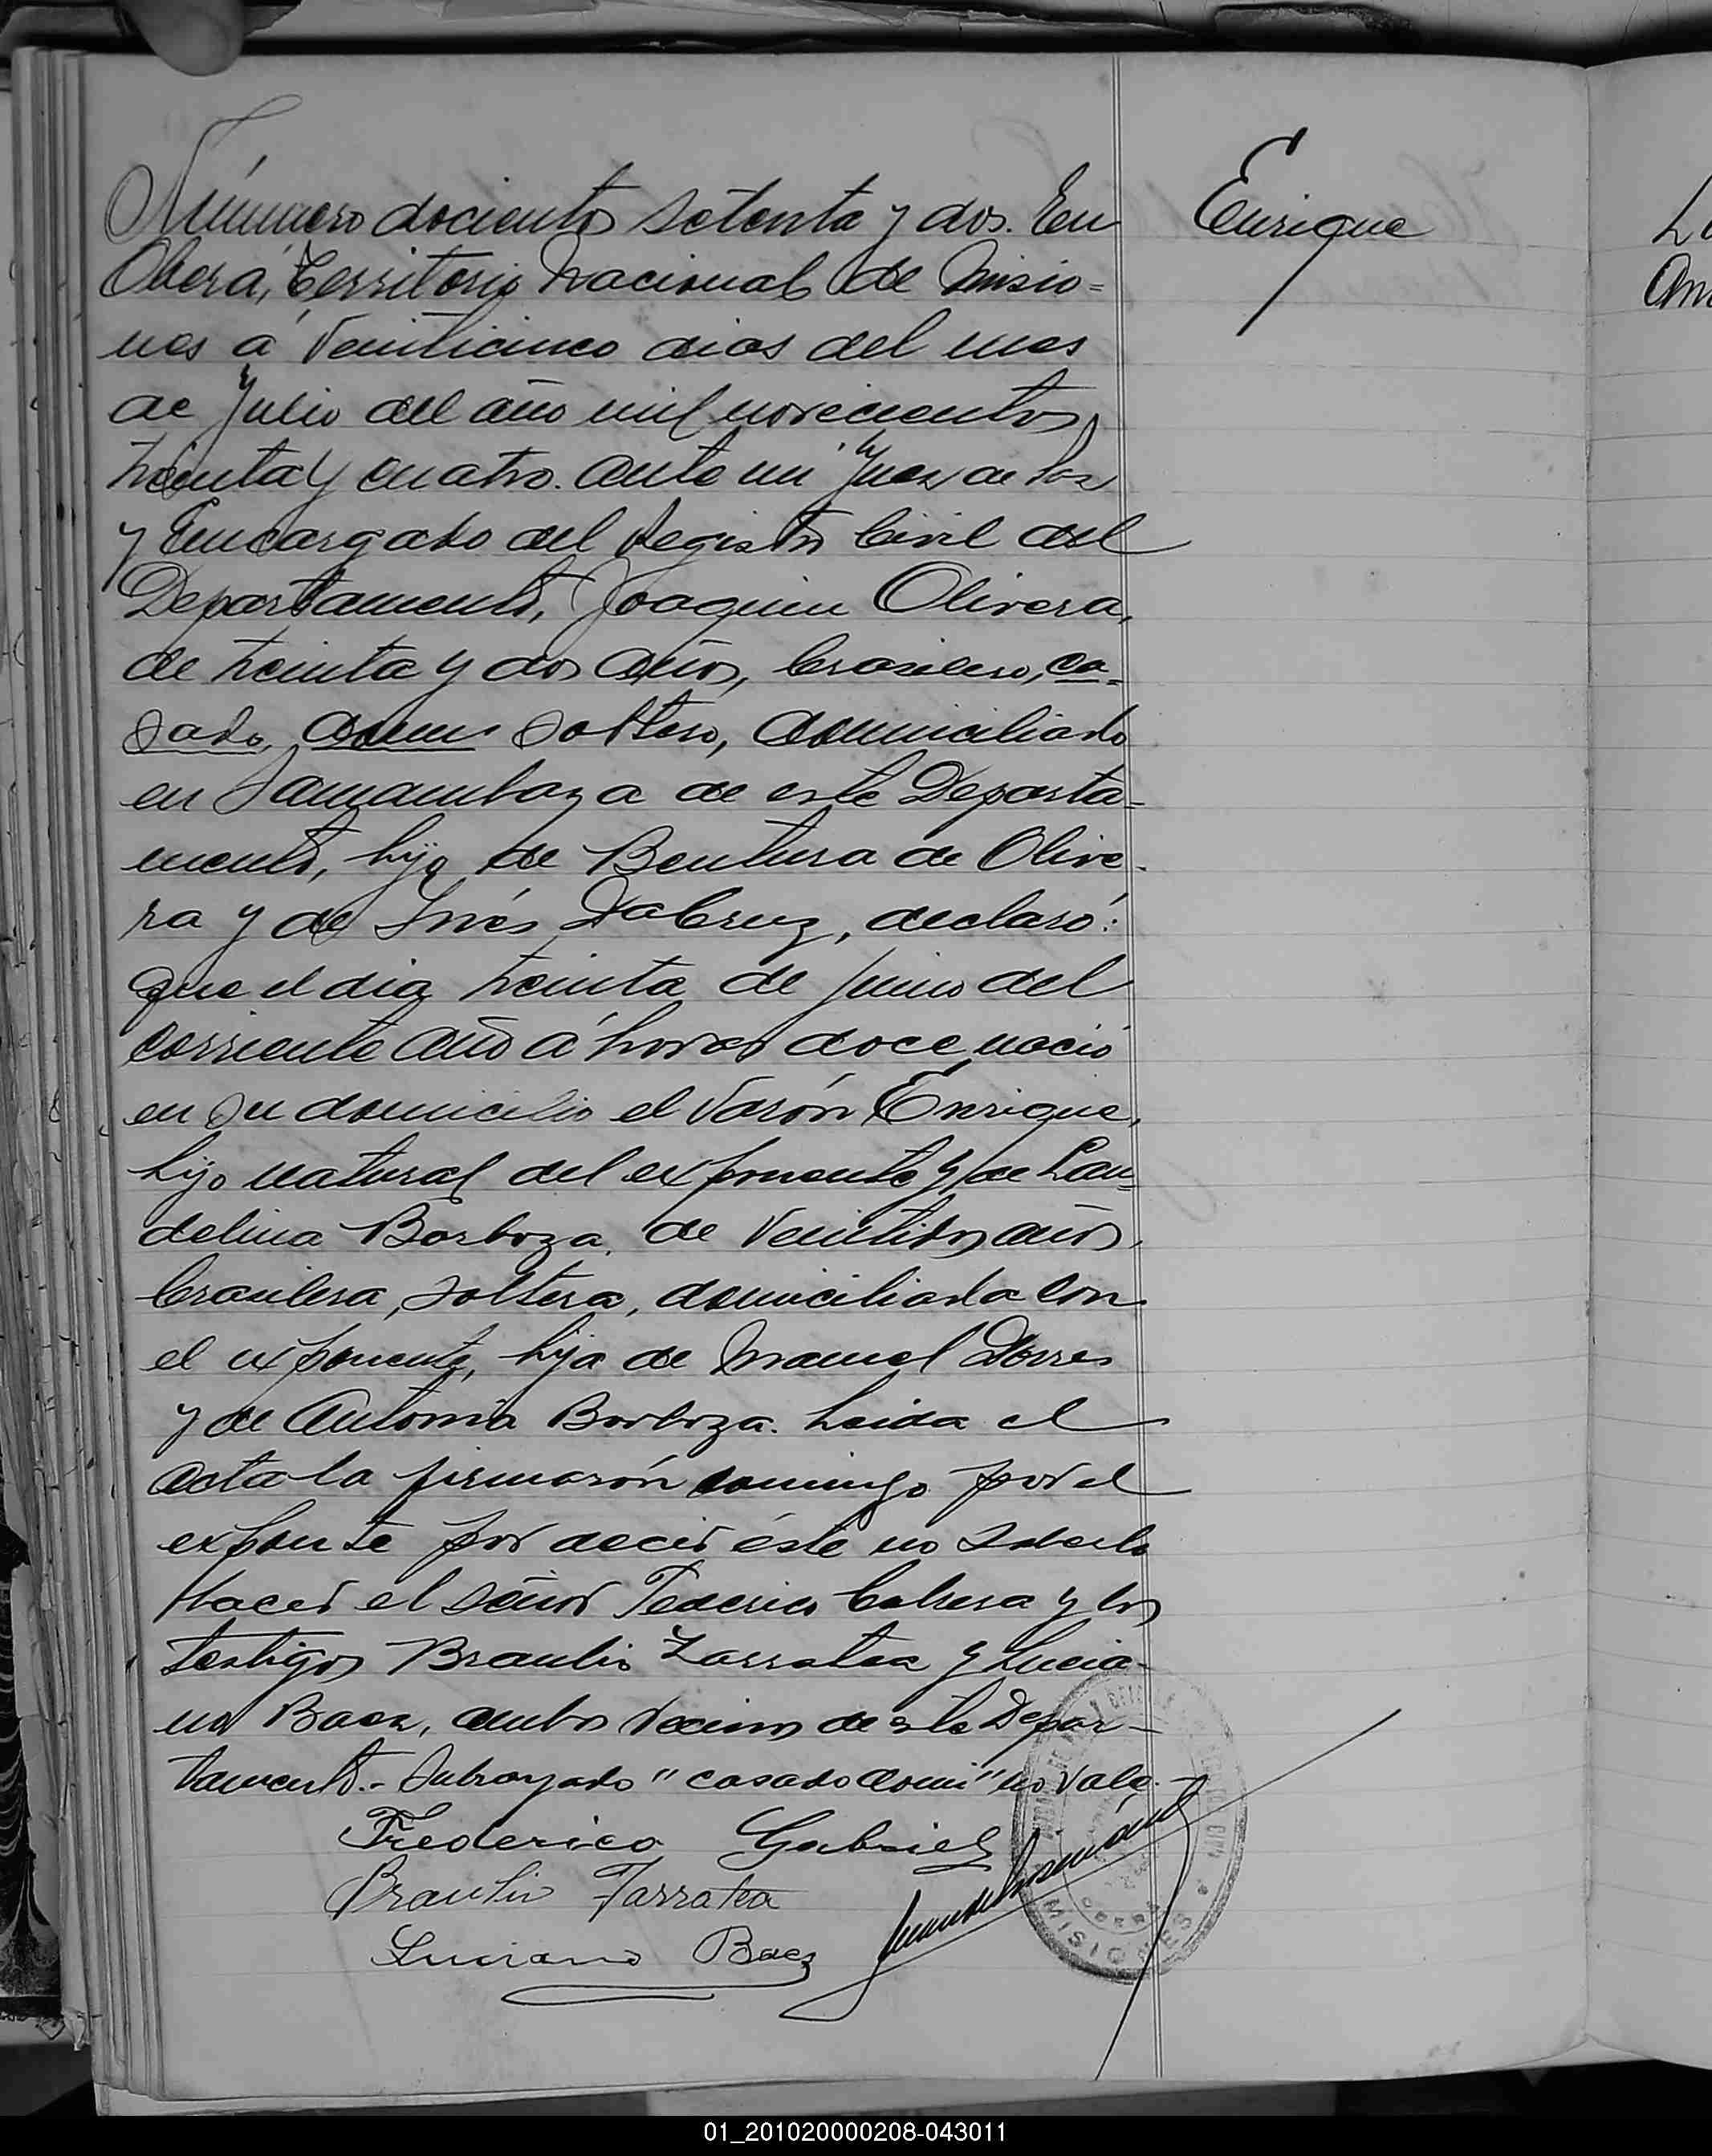 Número dociento setenta y dos. En
Oberá, Territorio Nacional de Misio=
nes á Veinticinco dias del mes
de Julio del año mil novecientos
treinta y cuatro. Ante mi Juez de Paz
y Encargado del Registro Civil del
Departamento, Joaquin Olivera,
de treinta y dos años, brasilero, ca=
sado, domi soltero, domiciliado
en de este Departa-
mento, hijo de Bentura de Olive-
ra y de Inés DaCruz, declaró:
que el dia treinta de Junio del
corriente año á horas doce nació
en su domicilio el Varón Enrique,
hijo natural del exponente y de Lau=
delina Borboza, de Veintidos años,
brasilera, soltera, domiciliada con
el exponente, hija de Manuel
y de Antonia Borboza. Leida el
acta la firmarón conmigo por el
exponte por decir éste no saberlo
Hacer el señor Federico y los
testigos Braulio Zarratea y Lucia-
no Baez, ambos Vecinos de este Depar-
tamento.- Subrayado "casado domi" no Vale.-
Frederico Gabriel
Braulio Zarratea
Luciano Baez
Enrique
MISIONES
OBERA
01_201020000208-043011